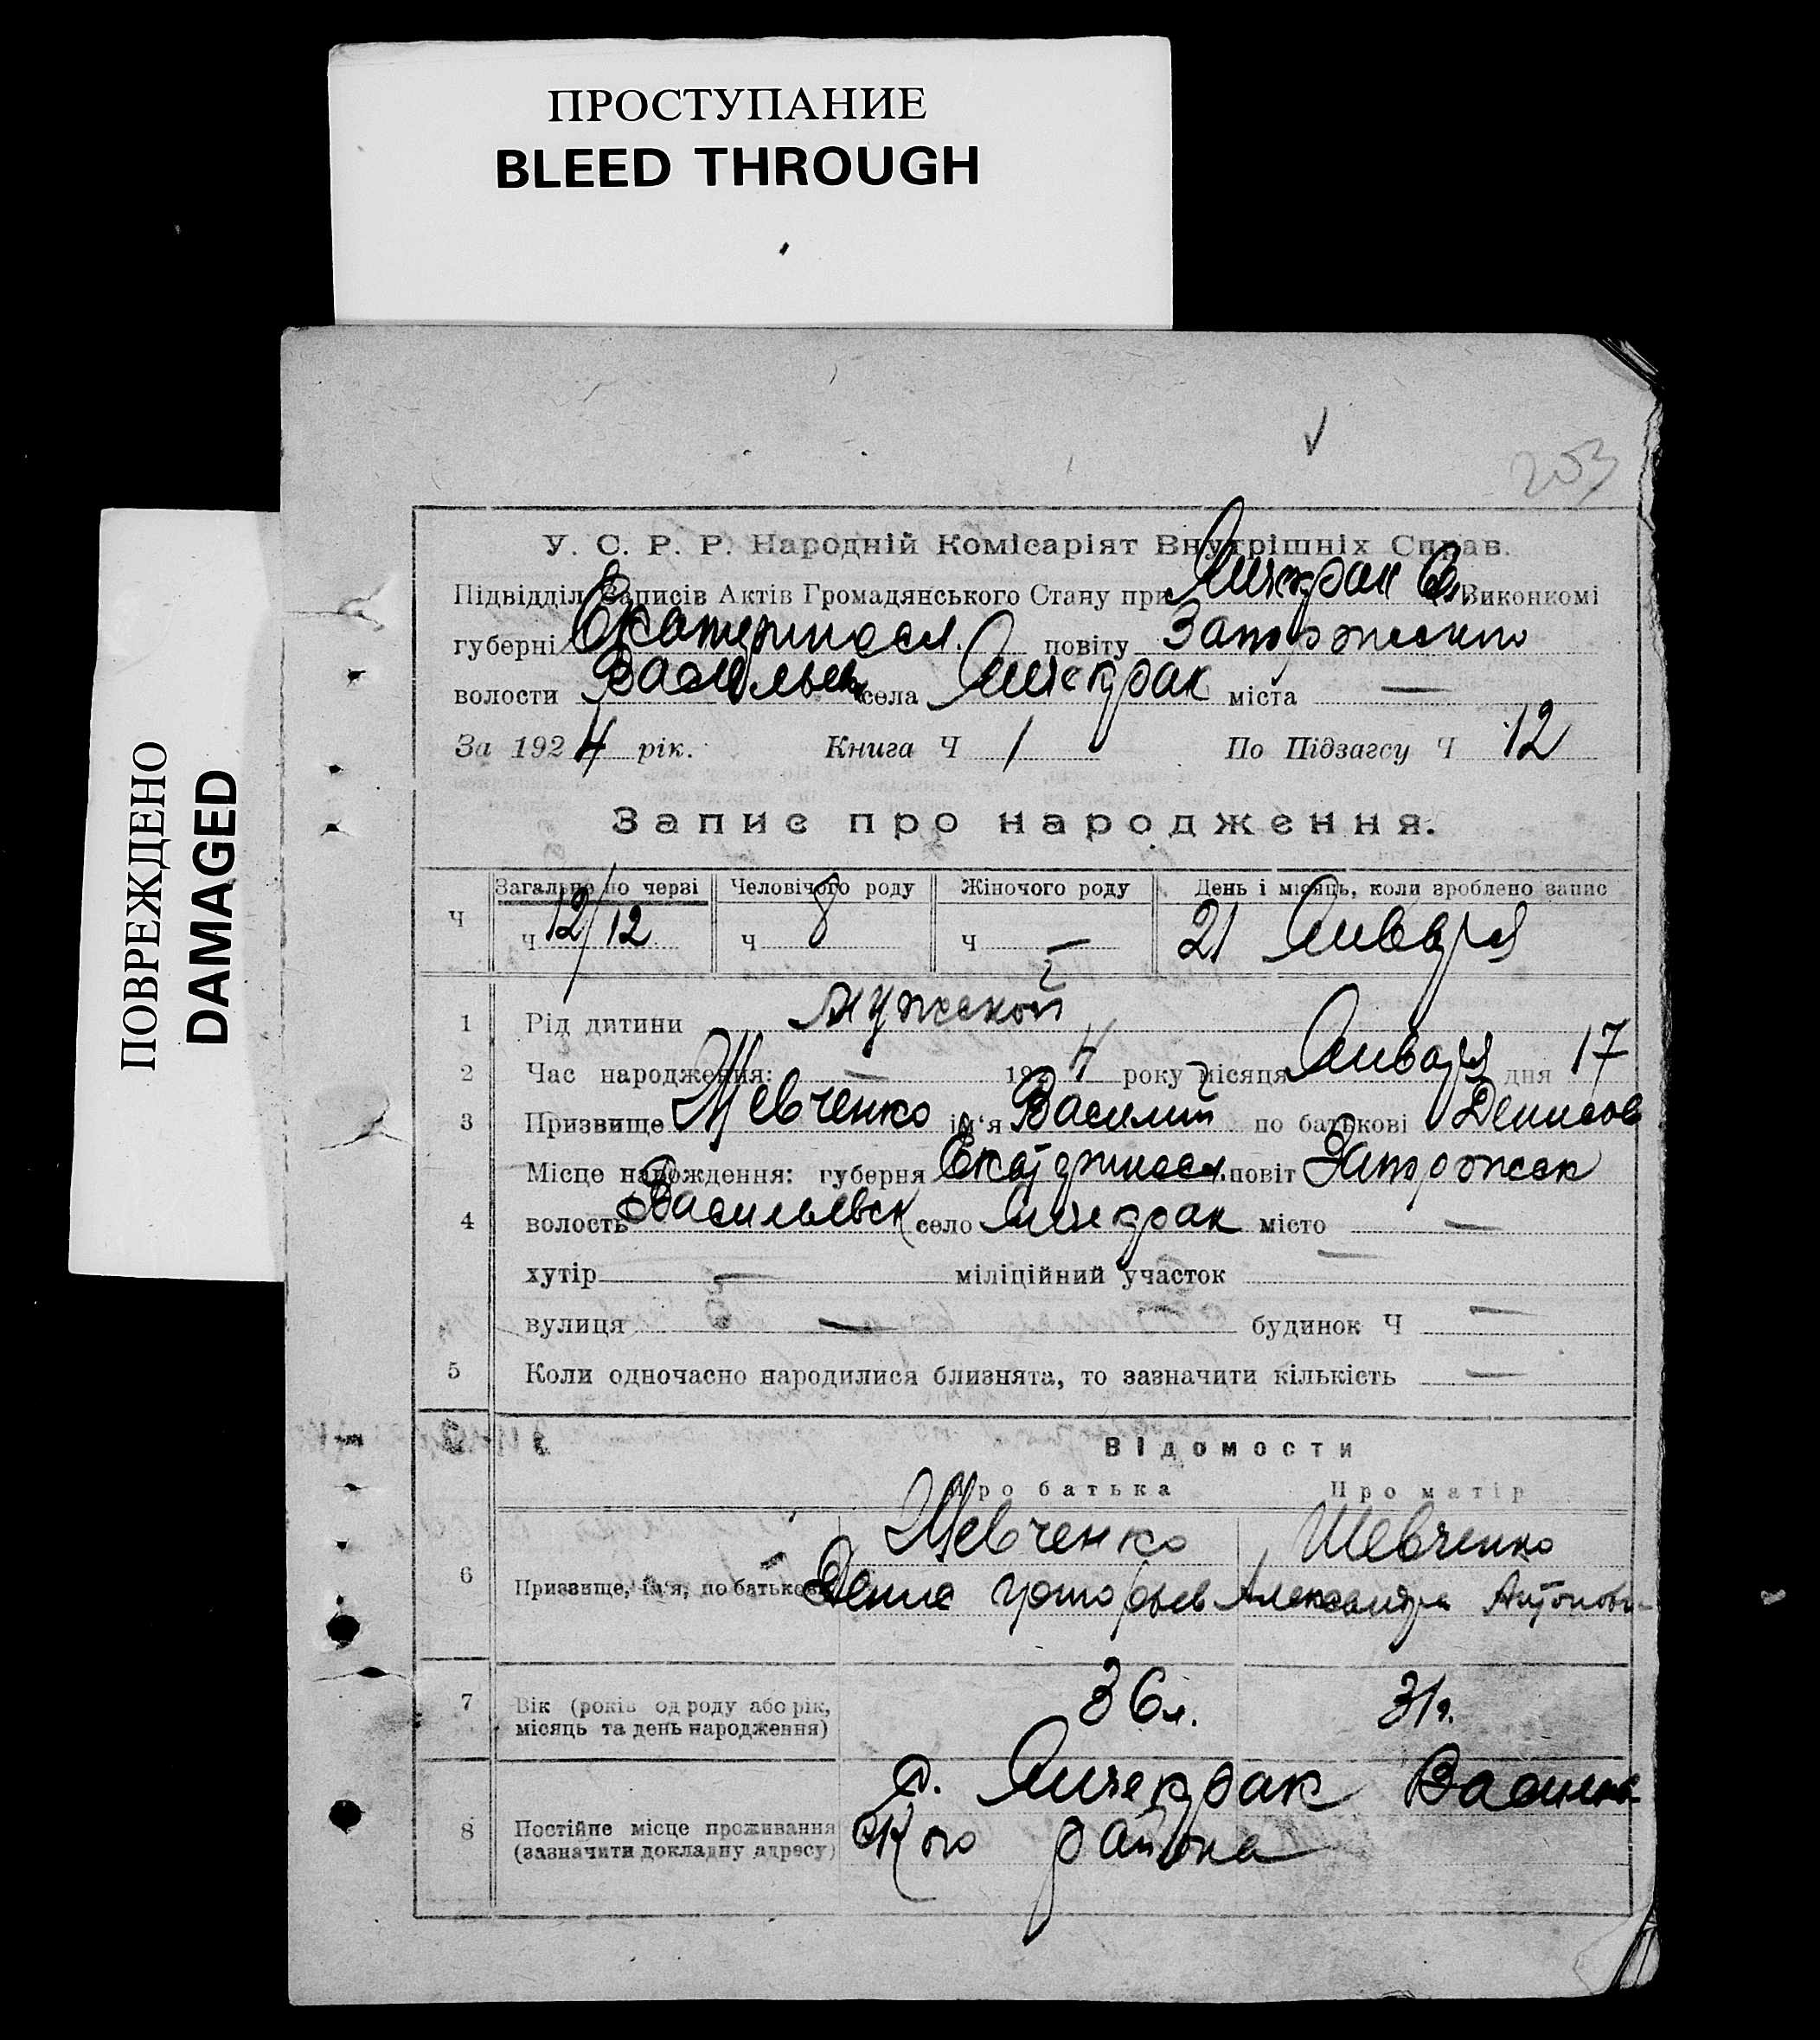 ПРОСТУПАНИЕ
BLEED THROUGH
ПОВРЕЖДЕНО
DAMAGED
203
У. С. Р. Р. Народній Комісаріят Внутрішніх Справ.
Підвідділ Записів Актів Громадянського Стану при Янчекрак С. Виконкомі
губерні Екатериносл. повіту Запорожского
волости Васильев села Янчекрак міста —
За 1924 рік. Книга Ч 1 По Підзагсу Ч 12
Запис про народження.
Ч Загальне по черзі Человічого роду Жіночого роду День і місяць, коли зроблено запис
ч 12/12 ч 8 ч — 21 Января
1 Рід дитини мужской
2 Час народження: — 1924 року місяця Января дня 17
3 Призвище Шевченко ім'я Василий по батькові Денисов
Місце народження: губерня Екатериносл. повіт Запорожск
4 волость Васильевск село Янчекрак місто —
хутір — міліційний участок —
вулиця — будинок Ч —
5 Коли одночасно народилися близнята, то зазначити кількість —
Відомости
Про батька Про матір
Шевченко Шевченко
6 Призвище, ім'я, по батькові Денис Александра Антонов
7 Вік (років од роду або рік, місяць та день народження) 36 л. 31 г.
с. Янчекрак Василев
8 Постійне місце проживання ского района
(зазначити докладну адресу)